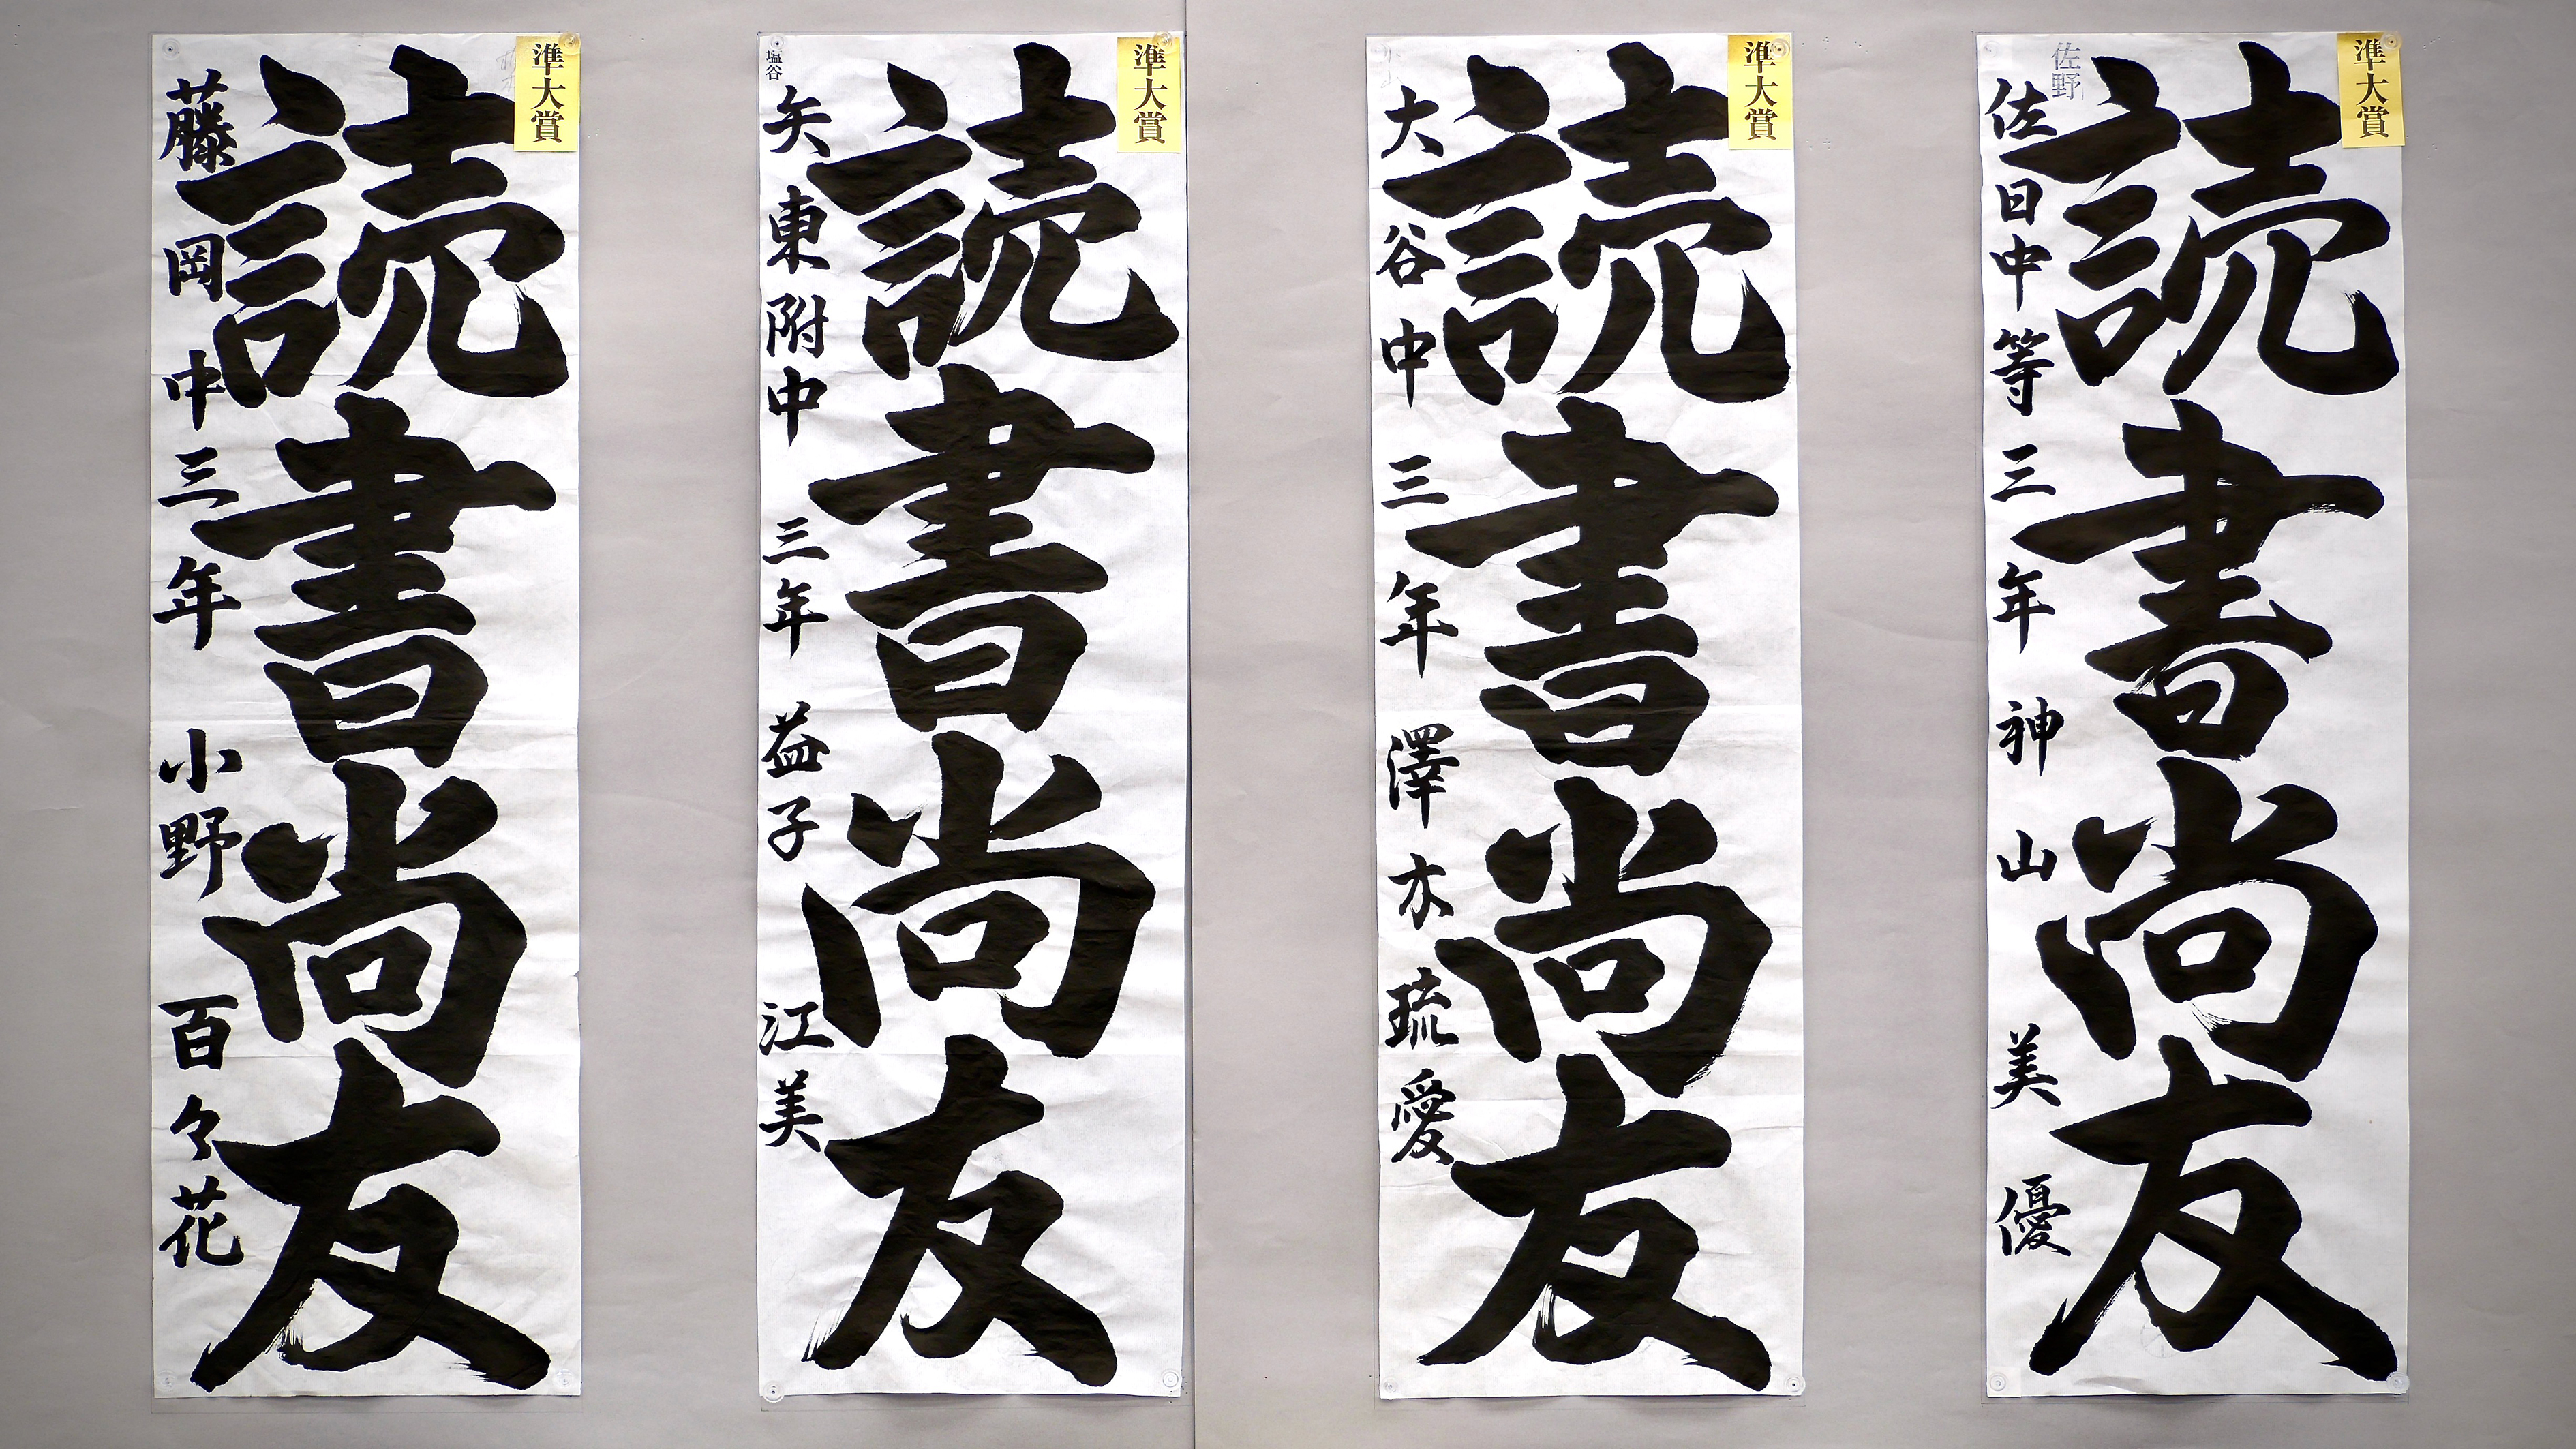 準大賞
読書尚友
藤岡中三年 小野百々花
準大賞
塩谷
読書尚友
矢東附中 三年 益子 江美
準大賞
読書尚友
大谷中 三年 澤木琉愛
準大賞
佐野
読書尚友
佐日中等三年 神山 美優